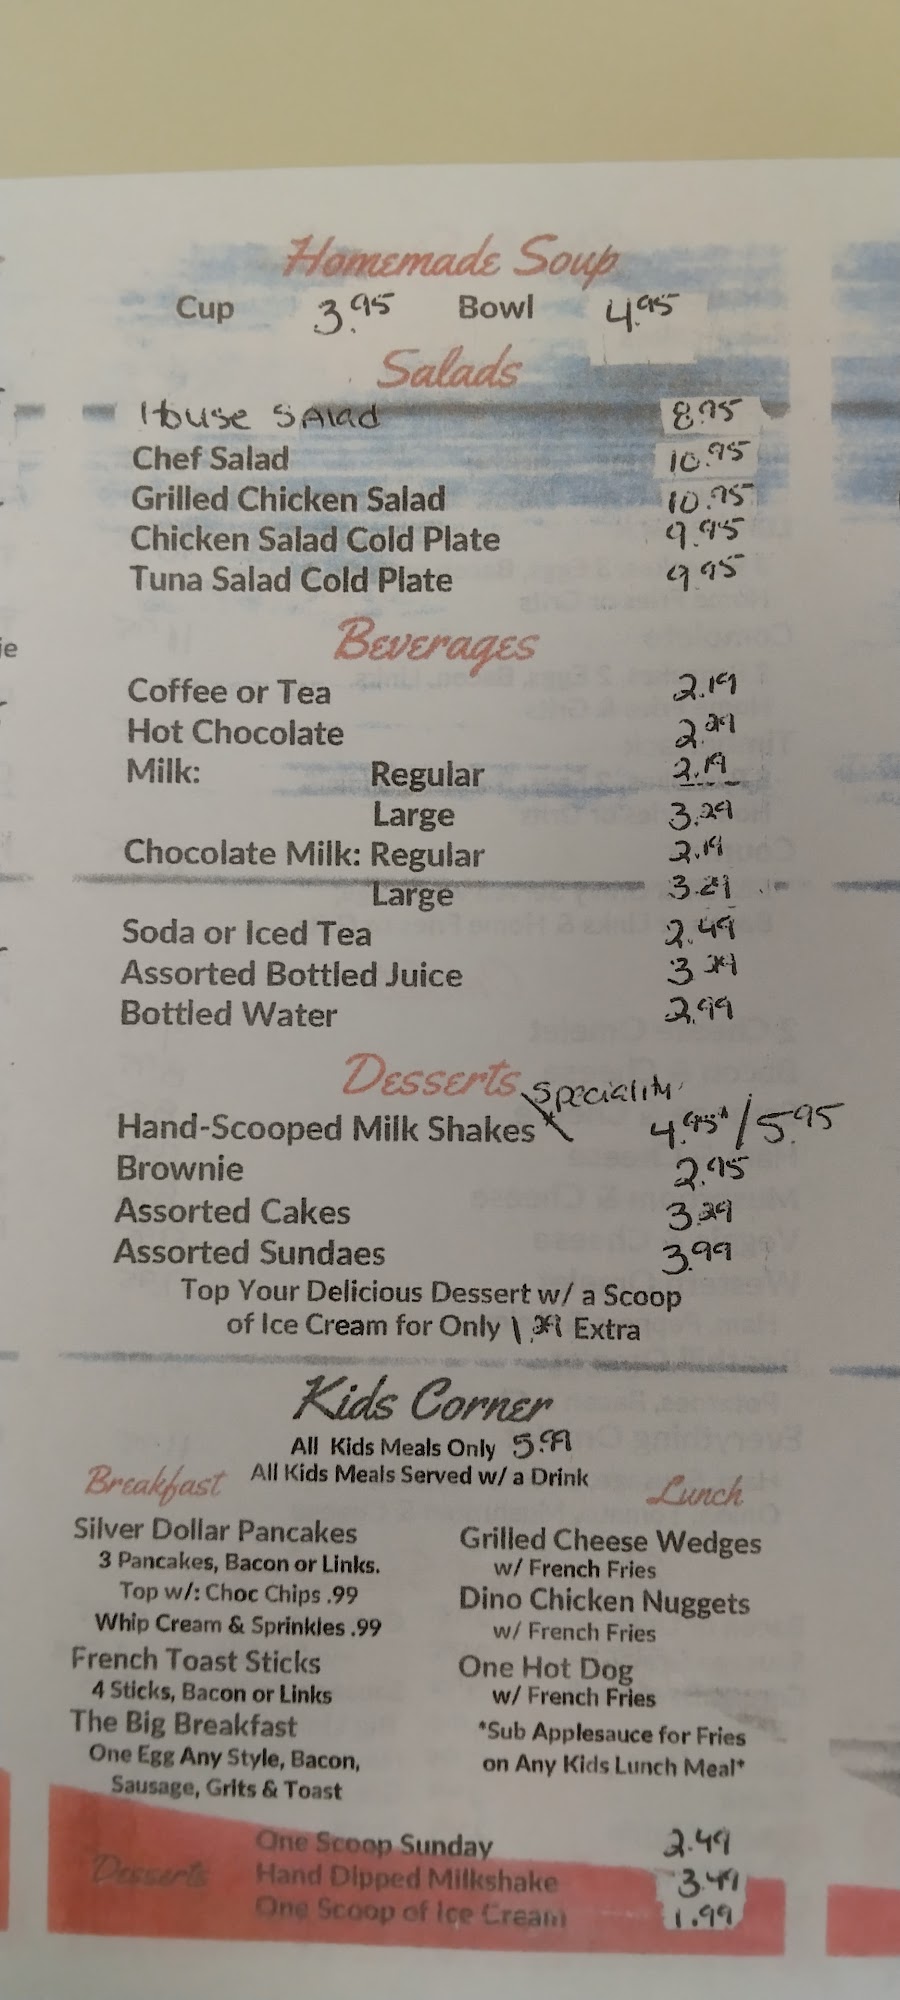 Homemade Soup
Cup 3.95 Bowl 4.95
Salads
House Salad 8.95
Chef Salad 10.95
Grilled Chicken Salad 10.95
Chicken Salad Cold Plate 9.95
Tuna Salad Cold Plate 9.95
Beverages
Coffee or Tea 2.19
Hot Chocolate 2.29
Milk: Regular 2.19
Large 3.29
Chocolate Milk: Regular 2.19
Large 3.29
Soda or Iced Tea 2.49
Assorted Bottled Juice 3.29
Bottled Water 2.99
Desserts
Speciality
Hand-Scooped Milk Shakes* 4.95*/5.95
Brownie 2.95
Assorted Cakes 3.29
Assorted Sundaes 3.99
Top Your Delicious Dessert w/ a Scoop
of Ice Cream for Only 1.29 Extra
Kids Corner
All Kids Meals Only 5.99
All Kids Meals Served w/ a Drink
Breakfast
Silver Dollar Pancakes
3 Pancakes, Bacon or Links.
Top w/: Choc Chips .99
Whip Cream & Sprinkles .99
French Toast Sticks
4 Sticks, Bacon or Links
The Big Breakfast
One Egg Any Style, Bacon,
Sausage, Grits & Toast
Lunch
Grilled Cheese Wedges
w/ French Fries
Dino Chicken Nuggets
w/ French Fries
One Hot Dog
w/ French Fries
*Sub Applesauce for Fries
on Any Kids Lunch Meal*
Desserts
One Scoop Sunday 2.49
Hand Dipped Milkshake 3.49
One Scoop of Ice Cream 1.99